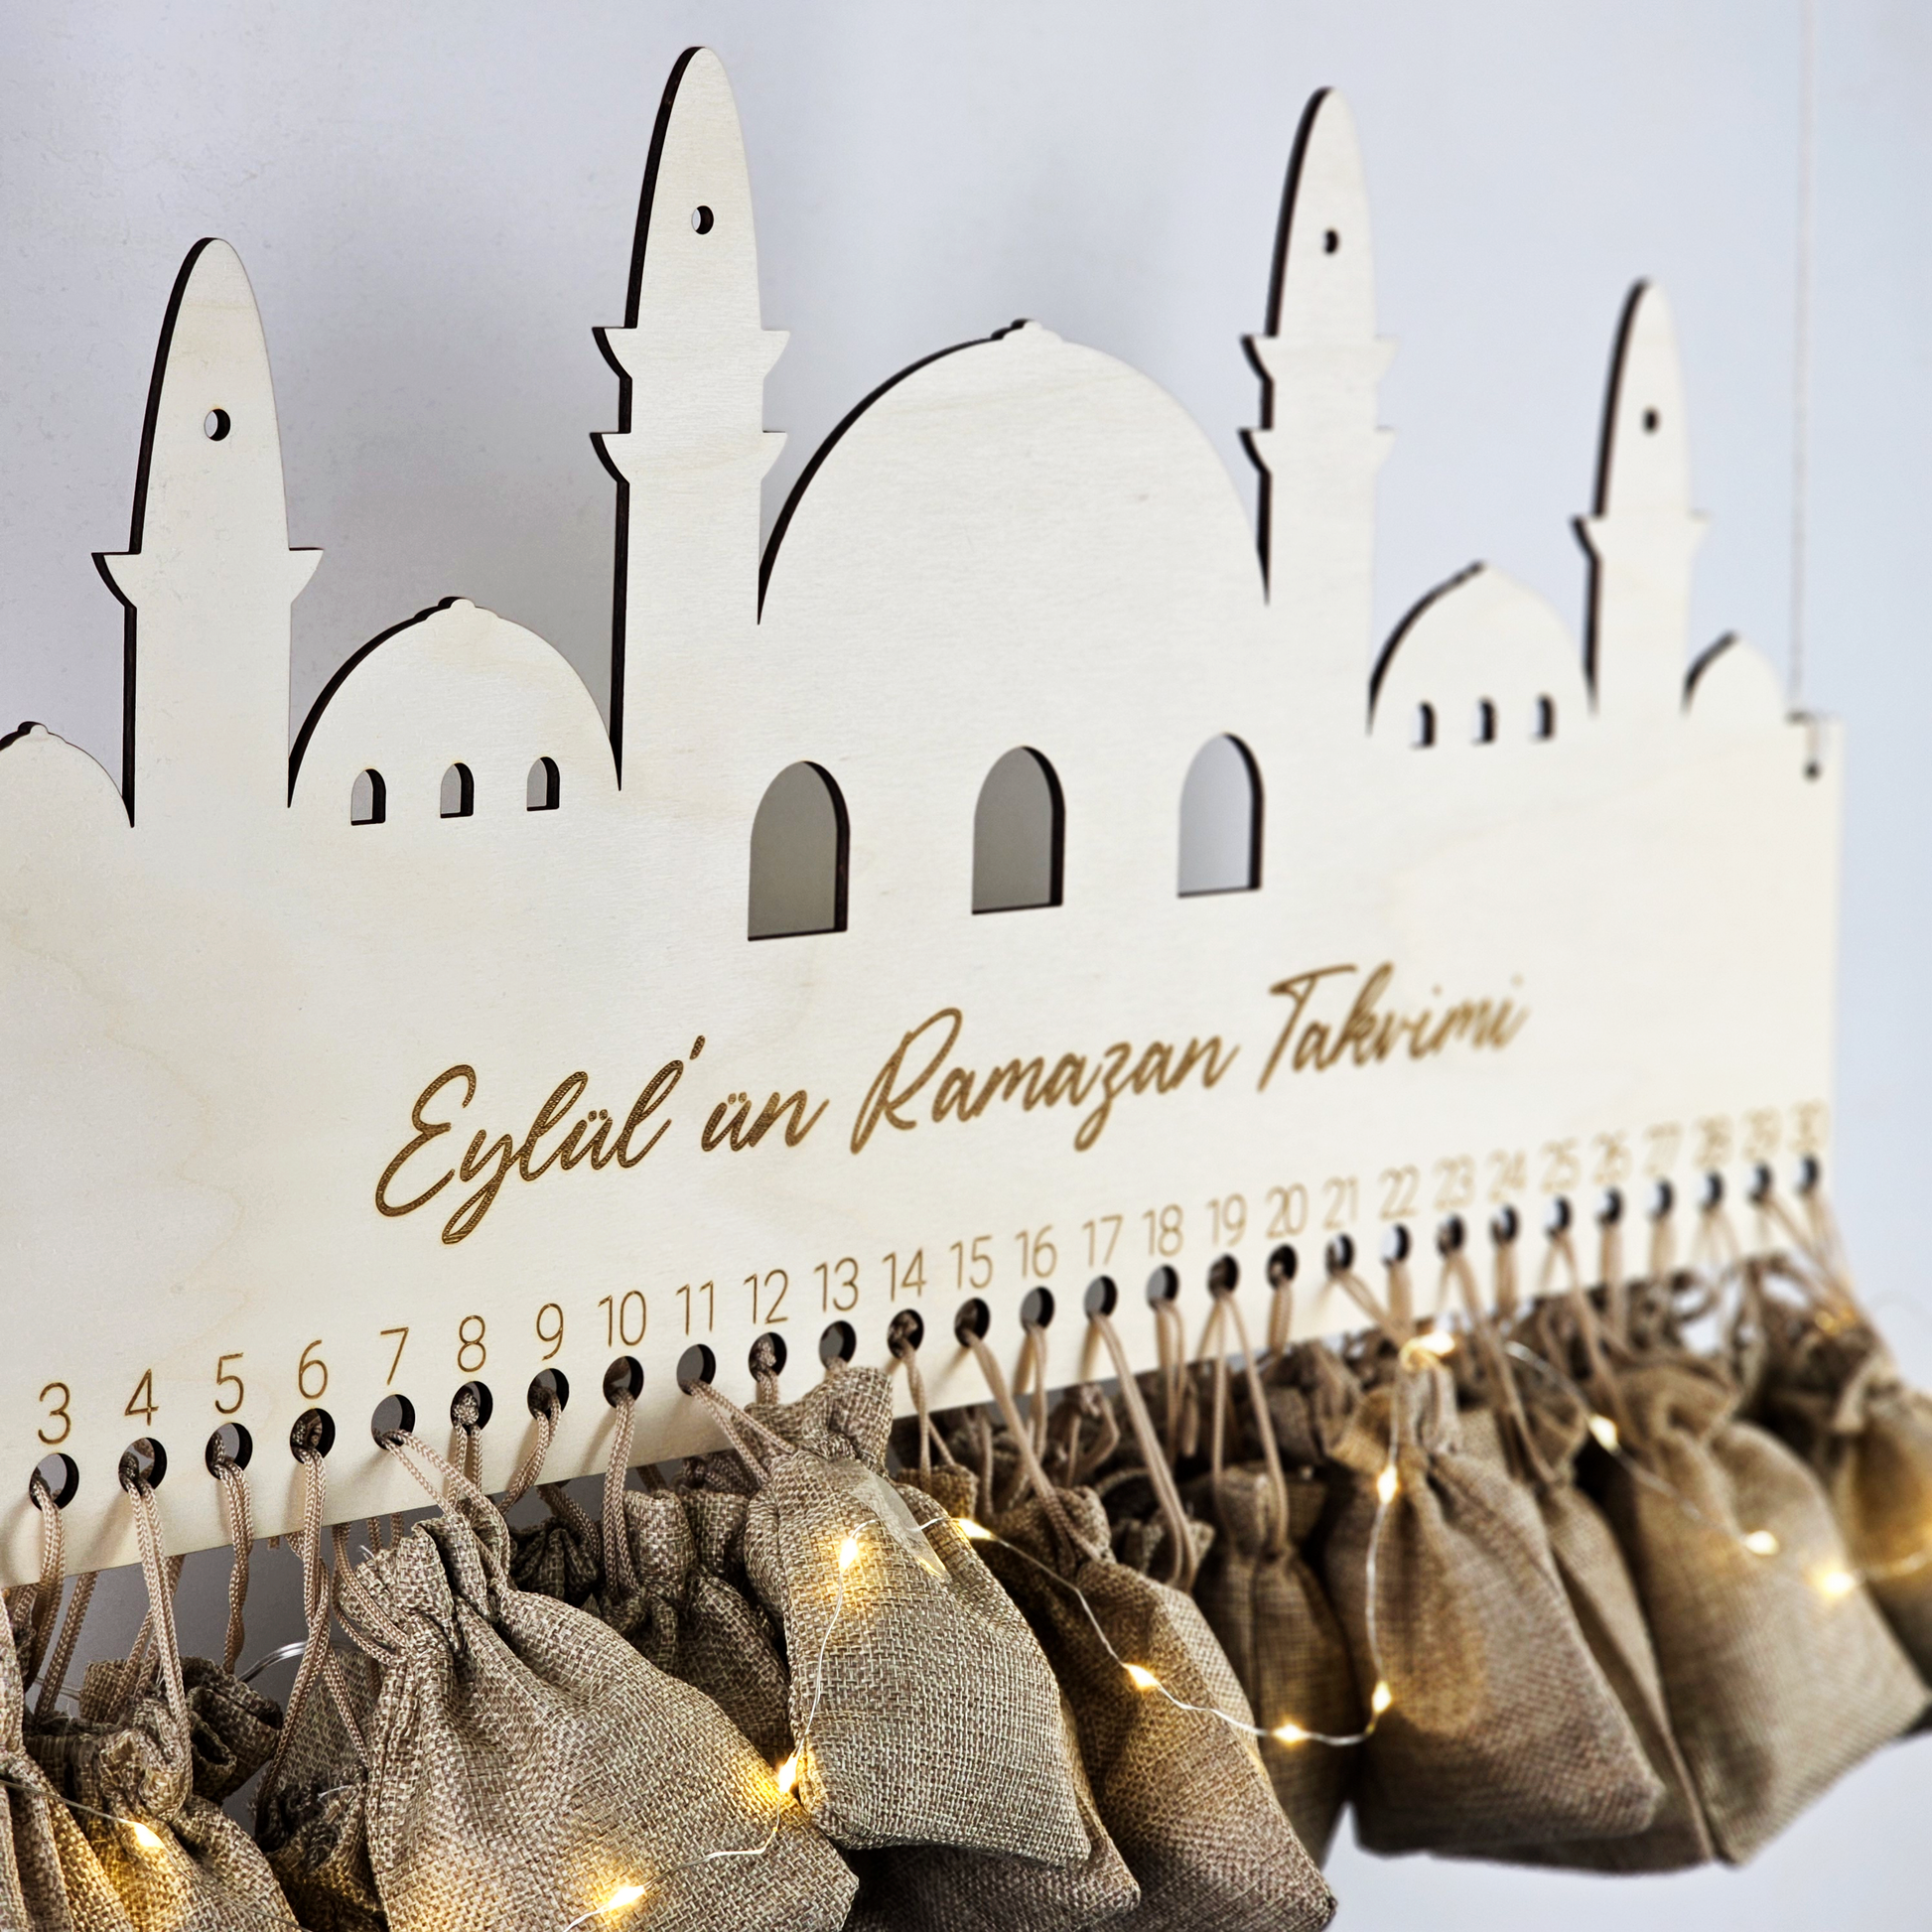 Eylül'ün Ramazan Takvimi
3 4 5 6 7 8 9 10 11 12 13 14 15 16 17 18 19 20 21 22 23 24 25 26 27 28 29 30